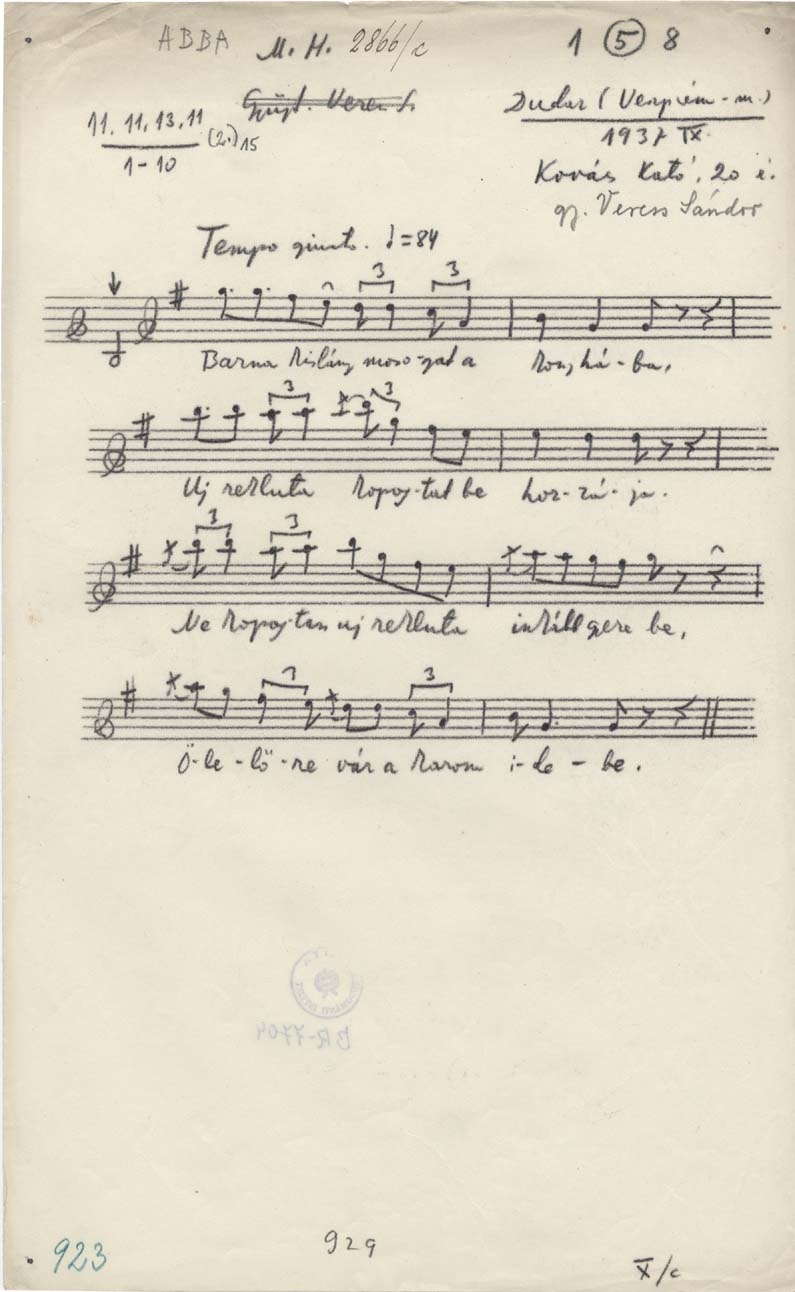 ABBA M. H. 2866/c 1 5 8
Gyűjt. Veress S.
11. 11. 13. 11 (2.) 15
1-10
Dudar (Veszprém-m.)
1937 IX.
Kovács Kató, 20 é.
gy. Veress Sándor
Tempo giusto. =84
3 3
Barna kislány moso-gat a konyhá-ba,
3 3
Uj rekluta kopog-tat be hoz-zá-ja.
3 3
Ne kopogtass uj rekluta inkább gere be,
3 3
Ö-le-lő-re vár a karom i-de-be.
BR-7704
923
929
X/c